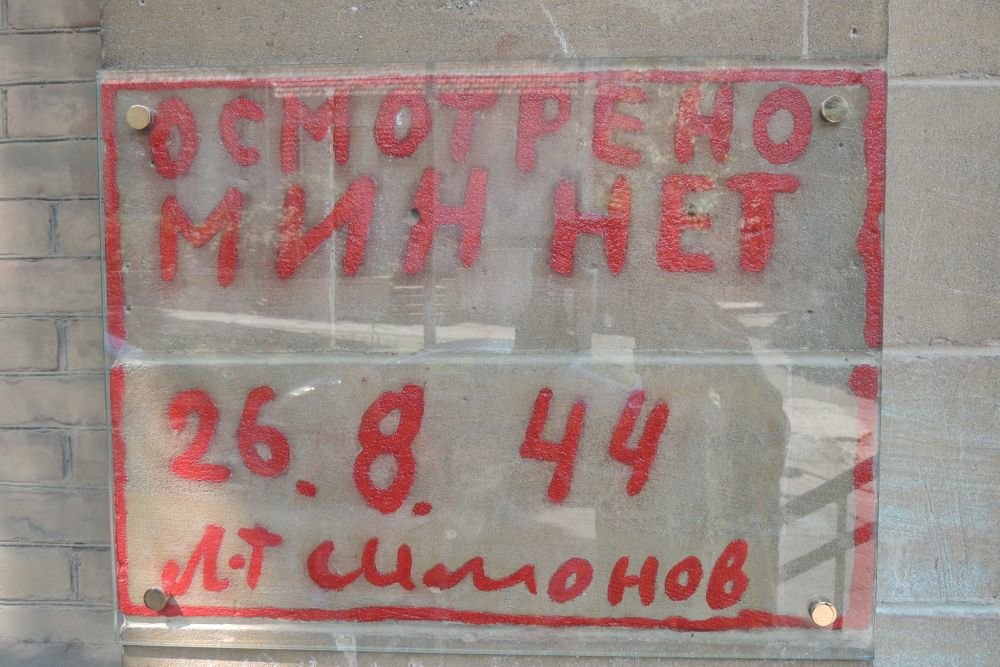 ОСМОТРЕНО
МИН НЕТ
26.8.44
Л-т Симонов